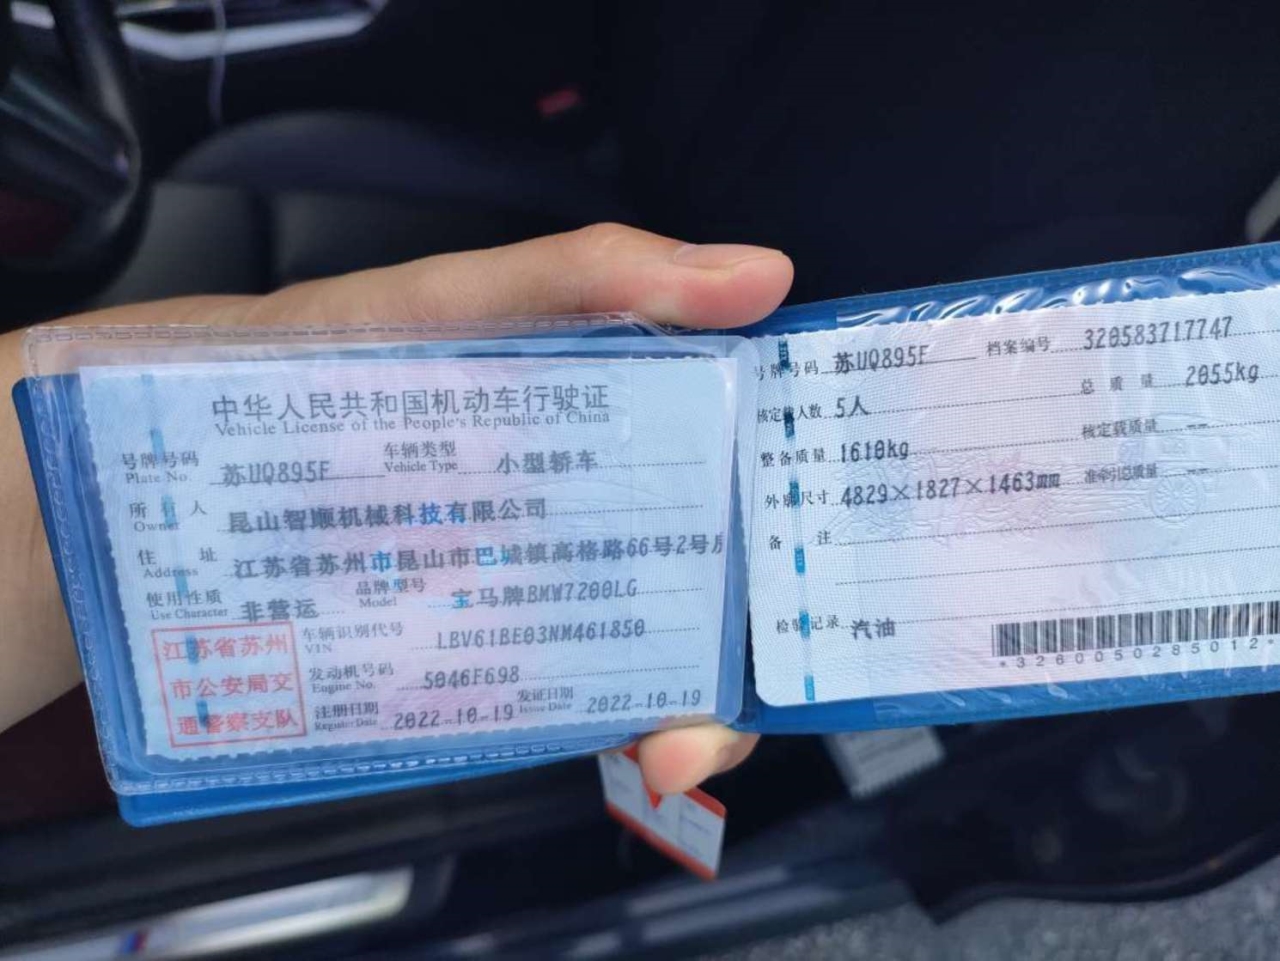 中华人民共和国机动车行驶证
Vehicle License of the People's Republic of China
号牌号码 Plate No. 苏UQ895F 车辆类型 Vehicle Type 小型轿车
所有人 Owner 昆山智顺机械科技有限公司
住址 Address 江苏省苏州市昆山市巴城镇高格路66号2号
使用性质 Use Character 非营运 品牌型号 Model 宝马牌BMW7200LG
江苏省苏州市公安局交通警察支队
车辆识别代号 VIN LBV61BE03NM461850
发动机号码 Engine No. 5046F698
注册日期 Register Date 2022-10-19 发证日期 Issue Date 2022-10-19
号牌号码 苏UQ895F 档案编号 320583717747
核定载人数 5人 总质量 2055kg
整备质量 1610kg 核定载质量 --
外廓尺寸 4829×1827×1463mm 准牵引总质量 --
备注
检验记录 汽油
*3260050285012*